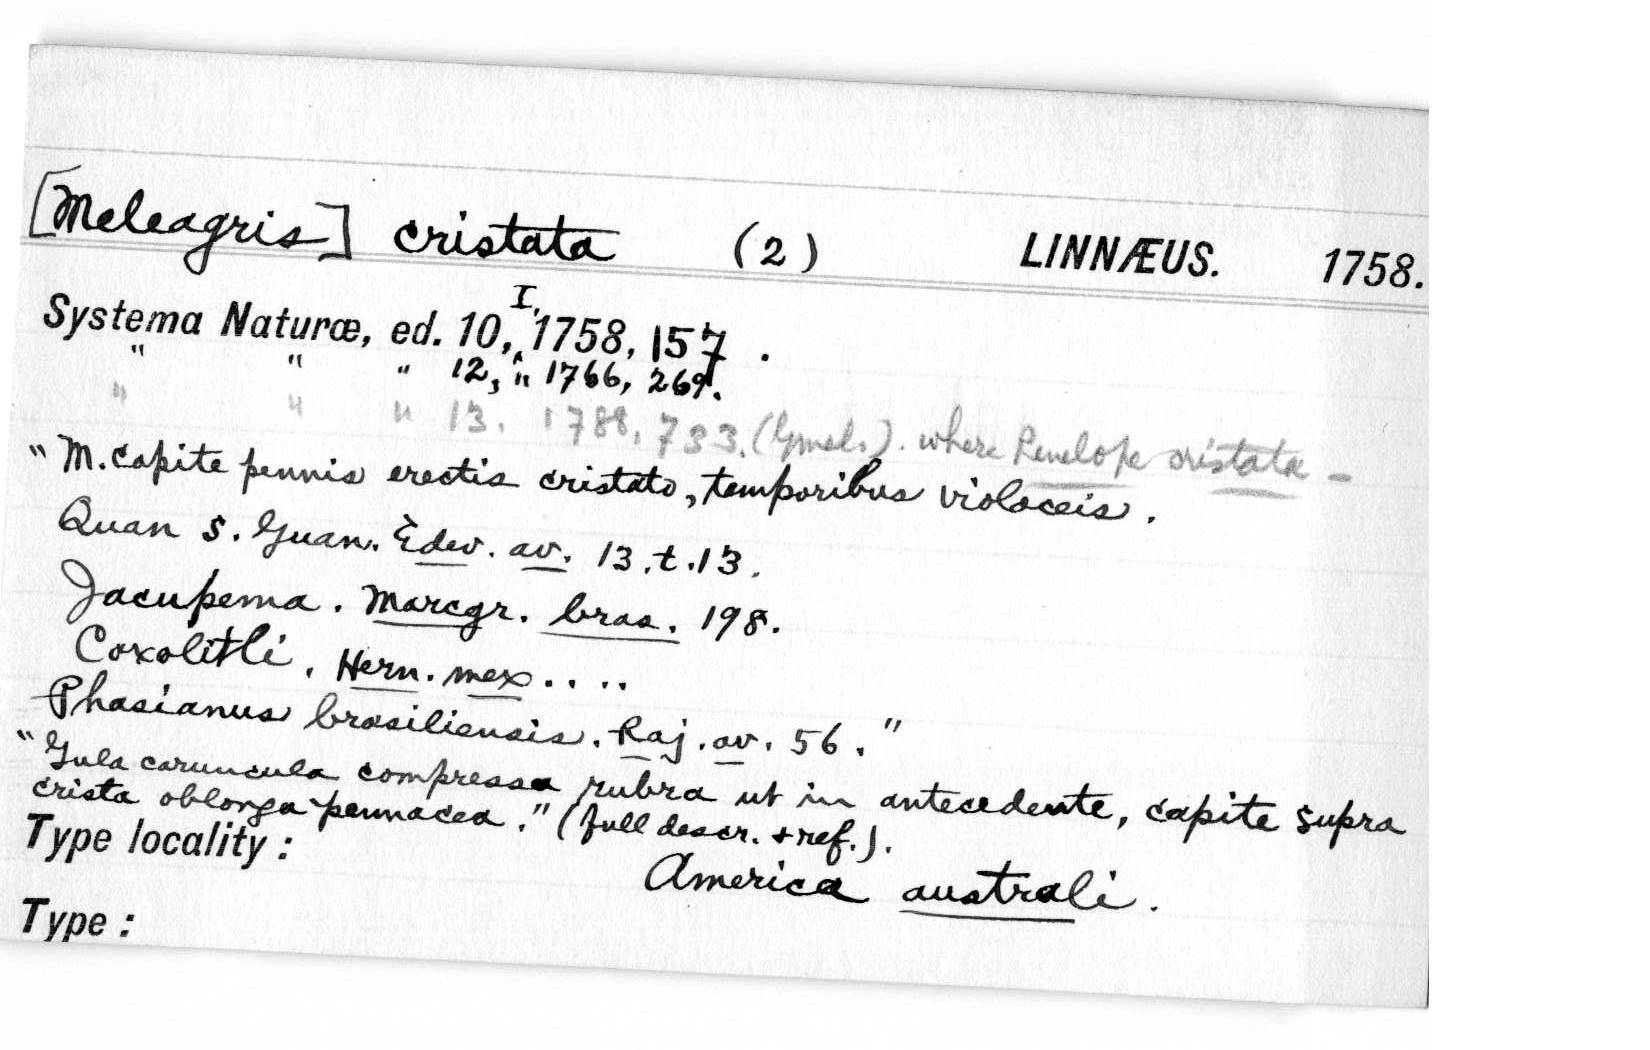 [Meleagris] cristata (2) LINNÆUS. 1758.
Systema Naturæ, ed. 10, I, 1758, 157.
" " " 12, " 1766, 269.
" " " 13. 1788, 733. (Gmel.). where Penelope cristata –
"M. capite pennis erectis cristato, temporibus violaceis.
Quan s. Guan. Edw. av. 13. t. 13.
Jacupema. Marcgr. bras. 198.
Coxolitli. Hern. mex....
Phasianus brasiliensis. Raj. av. 56."
"Gula caruncula compressa rubra ut in antecedente, capite supra
crista oblonga pennacea." (full descr. + ref.).
Type locality:
America australi.
Type: